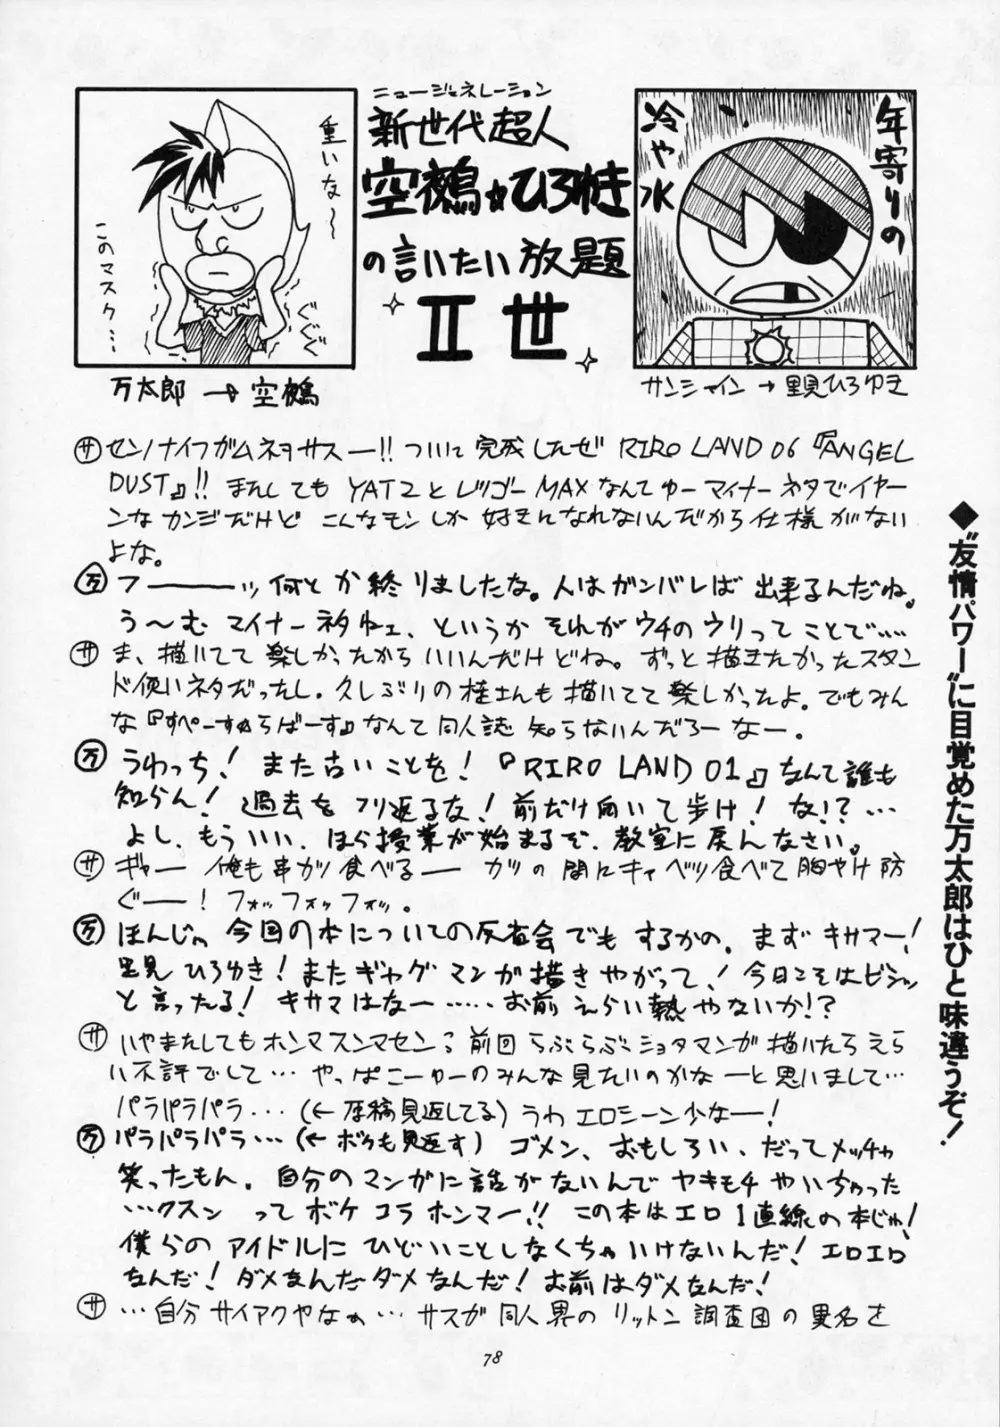 ニュージェネレーション
新世代超人
空鵺☆ひろゆき
の言いたい放題
II世
年寄りの
冷や水
重いな〜
このマスク…
ぐぐぐ
万太郎→空鵺
サンシャイン→里見ひろゆき
サ センノナイフガムネヲサスー!! ついに完成したぜ RIRO LAND 06『ANGEL
DUST』!! またしても YAT2とレッツゴーMAXなんてゆーマイナーネタでイヤー
ンなカンジだけど こんなモンしか好きになれないんだから仕様がない
よな。
万 フーーーッ何とか終りましたな。人はガンバレば出来るんだね。
う〜む マイナーネタねェ、というか それがウチのウリってことで……
サ ま、描いてて楽しかったからいいんだけどね。ずっと描きたかったスタン
ド使いネタだったし。久しぶりの桂さんも描いてて楽しかったよ。でもみん
な『すぺーすゆらばーす』なんて同人誌知らないんだろーなー。
万 うわっち! また古いことを!『RIRO LAND 01』なんて誰も
知らん! 過去をフリ返るな! 前だけ向いて歩け! な!?…
よし、もういい、ほら授業が始まるぞ、教室に戻んなさい。
サ ギャー 俺も串カツ食べるー カツの間にキャベツ食べて胸やけ防
ぐー! フォッフォッフォッ。
万 ほんじゃ今回の本についての反省会でもするかの。まずキサマー!
里見ひろゆき! またギャグマンガ描きやがって! 今日こそはビシッ
と言ったる! キサマはなー……お前えらい熱やないか!?
サ いやまたしてもホンマスンマセン。前回らぶらぶショタマンガ描いたらえら
い不評でして…やっぱこーゆーのみんな見たいのかなーと思いまして…
パラパラパラ…(←原稿見返してる)うわエロシーン少なー!
万 パラパラパラ…(←ボクも見返す) ゴメン、おもしろい、だってメッチャ
笑ったもん。自分のマンガに誰がないんでヤキモチやいちゃった
…クスン ってボケコラホンマー!! この本はエロ1直線の本じゃ!
僕らのアイドルにひどいことしなくちゃいけないんだ! エロエロ
なんだ! ダメなんだダメなんだ! お前はダメなんだ!
サ …自分サイアクやなぁ…サスガ同人界のリットン調査団の異名を
◆"友情パワー"に目覚めた万太郎はひと味違うぞ!
78